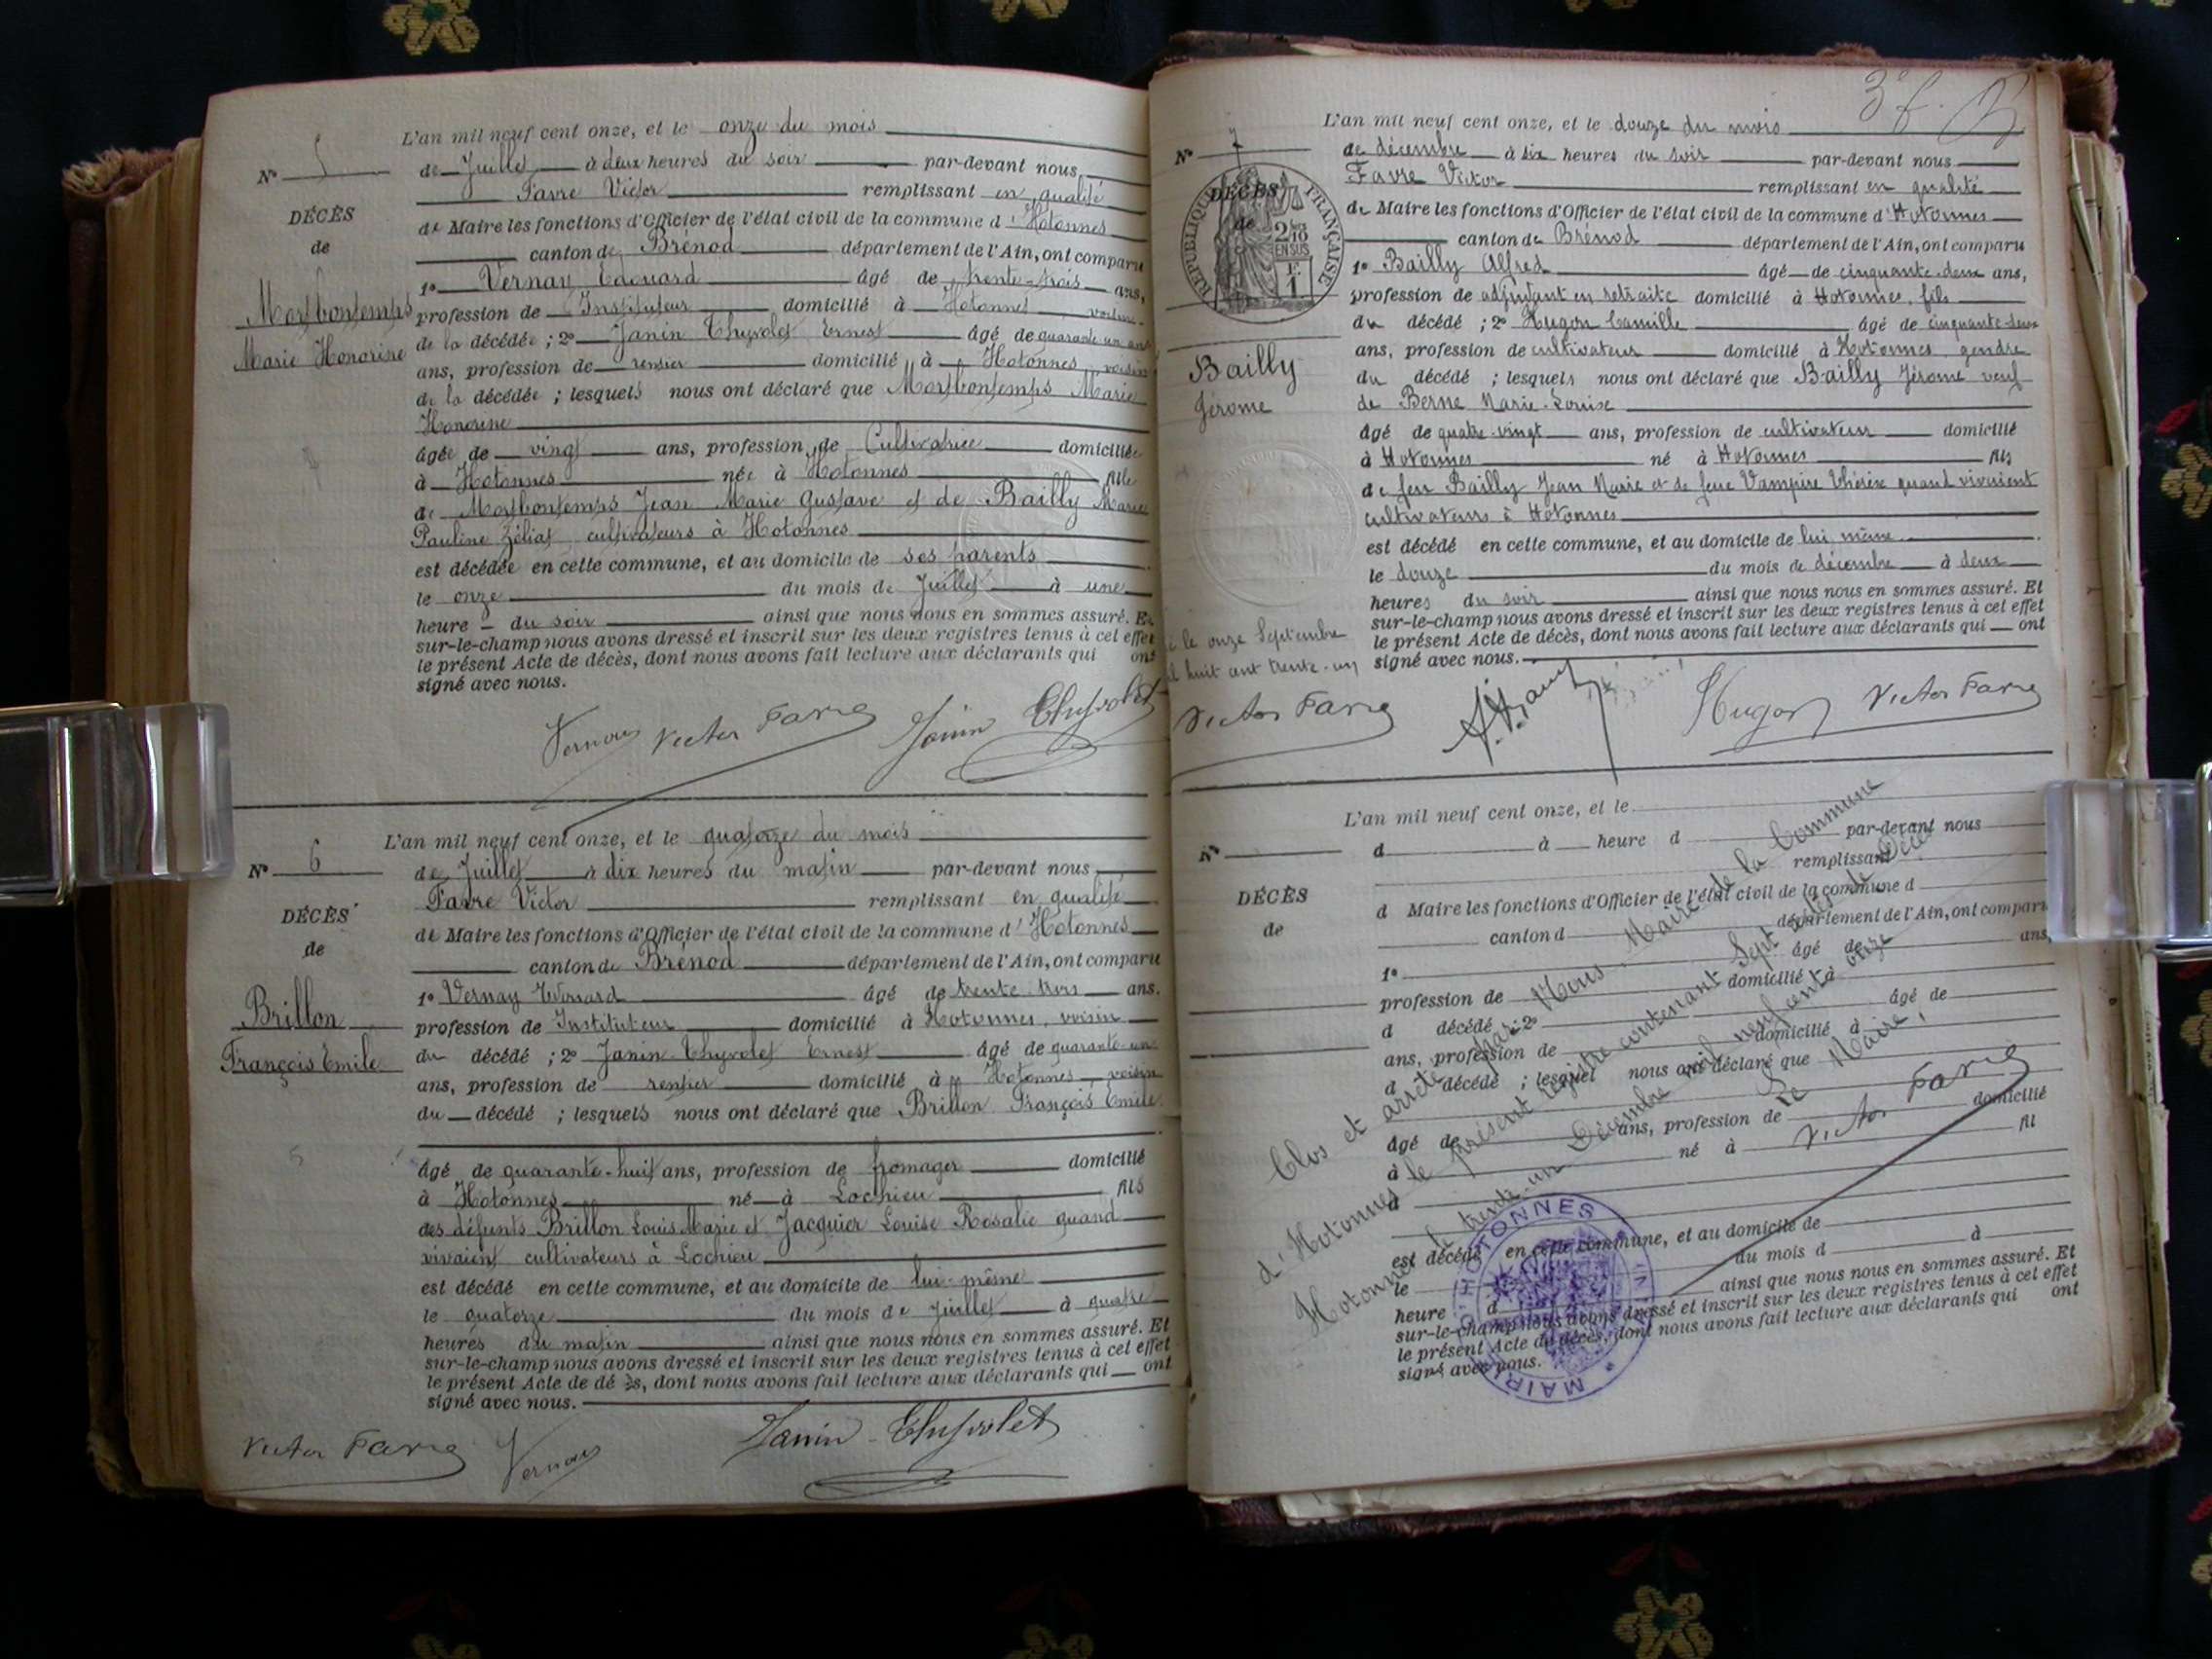 L'an mil neuf cent onze, et le onze du mois
N° 5
de Juillet à deux heures du soir par-devant nous
Favre Victor remplissant en qualité
DÉCÈS
de Maire les fonctions d'Officier de l'état civil de la commune d'Hotonnes
de
canton de Brénod département de l'Ain, ont comparu
1° Vernay Edouard âgé de trente-trois ans,
Mortbontemps
profession de Instituteur domicilié à Hotonnes voisin
Marie Honorine
de la décédée ; 2° Janin Thyvolet Ernest âgé de quarante un ans
ans, profession de rentier domicilié à Hotonnes voisin
de la décédée ; lesquels nous ont déclaré que Mortbontemps Marie
Honorine
âgée de vingt ans, profession de Cultivatrice domiciliée
à Hotonnes née à Hotonnes fille
de Mortbontemps Jean Marie Gustave et de Bailly Marie
Pauline Zélia, cultivateurs à Hotonnes
est décédée en cette commune, et au domicile de ses parents
le onze du mois de Juillet à une
heure du soir ainsi que nous nous en sommes assuré. Et
sur-le-champ nous avons dressé et inscrit sur les deux registres tenus à cet effet
le présent Acte de décès, dont nous avons fait lecture aux déclarants qui ont
signé avec nous.
Vernay Victor Favre Janin Thyvolet
L'an mil neuf cent onze, et le quatorze du mois
N° 6
de Juillet à dix heures du matin par-devant nous
Favre Victor remplissant en qualité
DÉCÈS
de Maire les fonctions d'Officier de l'état civil de la commune d'Hotonnes
de
canton de Brénod département de l'Ain, ont comparu
1° Vernay Edouard âgé de trente-trois ans.
Brillon
profession de Instituteur domicilié à Hotonnes, voisin
François Emile
du décédé ; 2° Janin-Thyvolet Ernest âgé de quarante-un
ans, profession de rentier domicilié à Hotonnes voisin
du décédé ; lesquels nous ont déclaré que Brillon François Emile
âgé de quarante-huit ans, profession de fromager domicilié
à Hotonnes né à Lochieu fils
des défunts Brillon Louis Marie et Jacquier Louise Rosalie quand
vivaient cultivateurs à Lochieu
est décédé en cette commune, et au domicile de lui-même
le quatorze du mois de Juillet à quatre
heures du matin ainsi que nous nous en sommes assuré. Et
sur-le-champ nous avons dressé et inscrit sur les deux registres tenus à cet effet
le présent Acte de décès, dont nous avons fait lecture aux déclarants qui ont
signé avec nous.
Victor Favre Vernay Janin-Thyvolet
3e f.
L'an mil neuf cent onze, et le douze du mois
N° 7
de décembre à six heures du soir par-devant nous
Favre Victor remplissant en qualité
DÉCÈS
de
RÉPUBLIQUE FRANÇAISE
2/10 EN SUS
F. 1
de Maire les fonctions d'Officier de l'état civil de la commune d'Hotonnes
canton de Brénod département de l'Ain, ont comparu
1° Bailly Alfred âgé de cinquante-deux ans,
profession de adjudant en retraite domicilié à Hotonnes, fils
du décédé ; 2° Hugon Camille âgé de cinquante-deux
ans, profession de cultivateur domicilié à Hotonnes, gendre
Bailly
Jérome
du décédé ; lesquels nous ont déclaré que Bailly Jérome veuf
de Berne Marie-Louise
âgé de quatre-vingt ans, profession de cultivateur domicilié
à Hotonnes né à Hotonnes fils
de feu Bailly Jean Marie et de feue Vampire Thérèse quand vivaient
cultivateurs à Hotonnes
est décédé en cette commune, et au domicile de lui même
le douze du mois de décembre à deux
heures du soir ainsi que nous nous en sommes assuré. Et
sur-le-champ nous avons dressé et inscrit sur les deux registres tenus à cet effet
le présent Acte de décès, dont nous avons fait lecture aux déclarants qui ont
signé avec nous.
le onze Septembre
huit cent trente-un
Victor Favre Hugon Victor Favre
L'an mil neuf cent onze, et le
N°
d à heure d par-devant nous
remplissant
DÉCÈS
d Maire les fonctions d'Officier de l'état civil de la commune d
de
canton d département de l'Ain, ont comparu
1° âgé de ans,
profession de domicilié à
d décédé ; 2° âgé de
ans, profession de domicilié à
d décédé ; lesquel nous ont déclaré que
âgé de ans, profession de domicilié
à né à fil
d
est décédé en cette commune, et au domicile de
le du mois d à
heure d ainsi que nous nous en sommes assuré. Et
sur-le-champ nous avons dressé et inscrit sur les deux registres tenus à cet effet
le présent Acte de décès, dont nous avons fait lecture aux déclarants qui ont
signé avec nous.
Clos et arrêté par Nous, Maire de la Commune
d'Hotonnes le présent registre contenant Sept actes de Décès
Hotonnes le trente-un Décembre mil neuf cent onze
Le Maire,
Victor Favre
MAIRIE D'HOTONNES